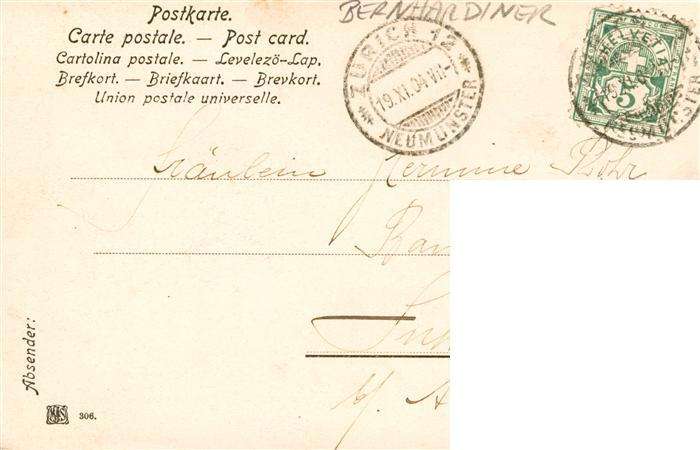 Postkarte.
Carte postale. — Post card.
Cartolina postale. — Levelező-Lap.
Brefkort. — Briefkaart. — Brevkort.
Union postale universelle.
BERNHARDINER
ZÜRICH 12
19.XI.04.VII-1
NEUMÜNSTER
HELVETIA
5
NEUMÜNSTER
Fräulein Hermine Rohr
Absender:
306.